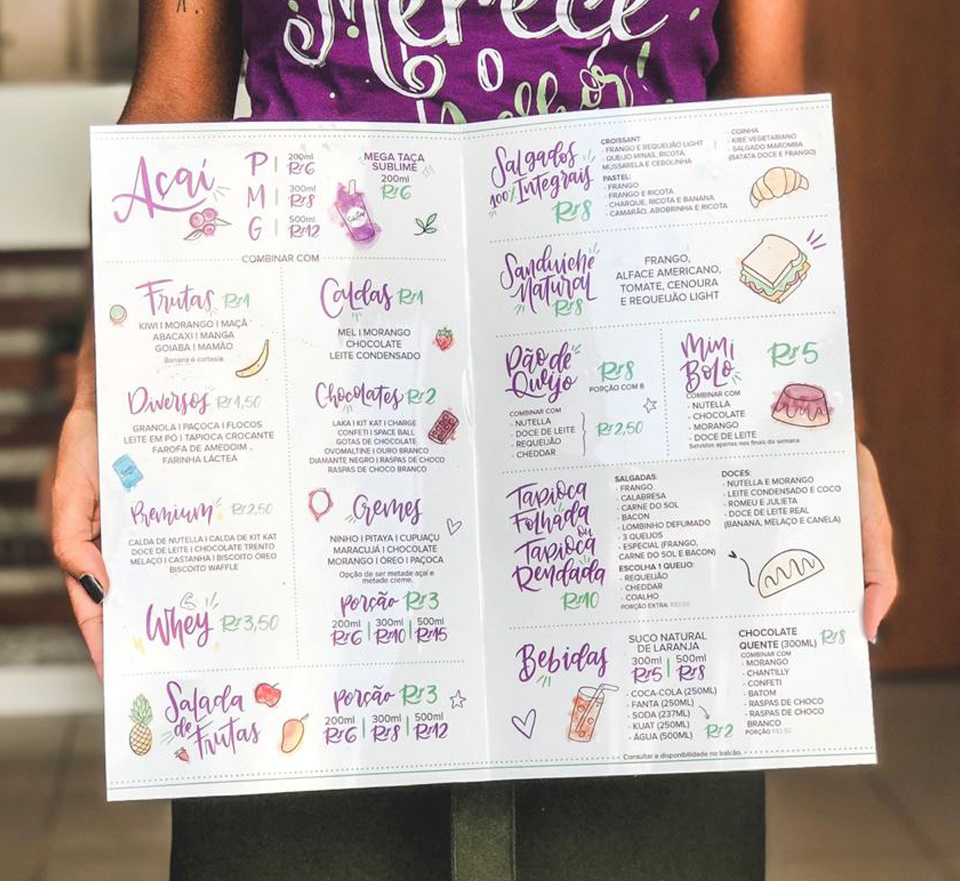 Merece
o
Melhor!
Açaí
P | 200ml R$6
M | 300ml R$8
G | 500ml R$12
MEGA TAÇA
SUBLIME
200ml
R$6
COMBINAR COM
Frutas R$1
KIWI I MORANGO I MAÇÃ
ABACAXI I MANGA
GOIABA I MAMÃO
Banana é cortesia.
Caldas R$1
MEL I MORANGO
CHOCOLATE
LEITE CONDENSADO
Diversos R$1,50
GRANOLA I PAÇOCA I FLOCOS
LEITE EM PÓ I TAPIOCA CROCANTE
FAROFA DE AMEDOIM
FARINHA LÁCTEA
Chocolates R$2
LAKA I KIT KAT I CHARGE
CONFETI I SPACE BALL
GOTAS DE CHOCOLATE
OVOMALTINE I OURO BRANCO
DIAMANTE NEGRO I RASPAS DE CHOCO
RASPAS DE CHOCO BRANCO
Premium R$2,50
CALDA DE NUTELLA I CALDA DE KIT KAT
DOCE DE LEITE I CHOCOLATE TRENTO
MELAÇO I CASTANHA I BISCOITO ÓREO
BISCOITO WAFFLE
Cremes
NINHO I PITAYA I CUPUAÇU
MARACUJÁ I CHOCOLATE
MORANGO I ÓREO I PAÇOCA
Opção de ser metade açaí e
metade creme.
Porção R$3
200ml | 300ml | 500ml
R$6 | R$10 | R$15
Whey R$3,50
Salada
de Frutas
Porção R$3
200ml | 300ml | 500ml
R$6 | R$8 | R$12
Salgados
100% Integrais
R$8
CROISSANT:
· FRANGO E REQUEIJÃO LIGHT
· QUEIJO MINAS, RICOTA,
MUSSARELA E CEBOLINHA
PASTEL:
· FRANGO
· FRANGO E RICOTA
· CHARQUE, RICOTA E BANANA
· CAMARÃO, ABOBRINHA E RICOTA
· COXINHA
· KIBE VEGETARIANO
· SALGADO MAROMBA
(BATATA DOCE E FRANGO)
Sanduiche
Natural
R$8
FRANGO,
ALFACE AMERICANO,
TOMATE, CENOURA
E REQUEIJÃO LIGHT
Pão de
Queijo
R$8
PORÇÃO COM 8
COMBINAR COM
· NUTELLA
· DOCE DE LEITE
· REQUEIJÃO
· CHEDDAR
R$2,50
Mini
Bolo
R$5
COMBINAR COM
· NUTELLA
· CHOCOLATE
· MORANGO
· DOCE DE LEITE
Servidos apenas nos finais de semana.
Tapioca
Folhada
ou
Tapioca
Rendada
R$10
SALGADAS:
· FRANGO
· CALABRESA
· CARNE DO SOL
· BACON
· LOMBINHO DEFUMADO
· 3 QUEIJOS
· ESPECIAL (FRANGO,
CARNE DO SOL E BACON)
ESCOLHA 1 QUEIJO:
· REQUEIJÃO
· CHEDDAR
· COALHO
PORÇÃO EXTRA:
DOCES:
· NUTELLA E MORANGO
· LEITE CONDENSADO E COCO
· ROMEU E JULIETA
· DOCE DE LEITE REAL
(BANANA, MELAÇO E CANELA)
Bebidas
SUCO NATURAL
DE LARANJA
300ml | 500ml
R$5 | R$8
· COCA-COLA (250ML)
· FANTA (250ML)
· SODA (237ML)
· KUAT (250ML)
· ÁGUA (500ML)
R$2
CHOCOLATE
QUENTE (300ML) R$8
COMBINAR COM
· MORANGO
· CHANTILLY
· CONFETI
· BATOM
· RASPAS DE CHOCO
· RASPAS DE CHOCO
BRANCO
PORÇÃO
Consultar a disponibilidade no balcão.